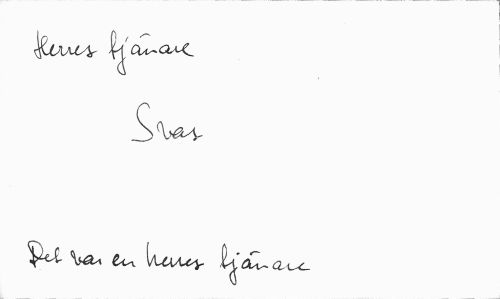 Herres tjänare
Svar
Det var en herres tjänare